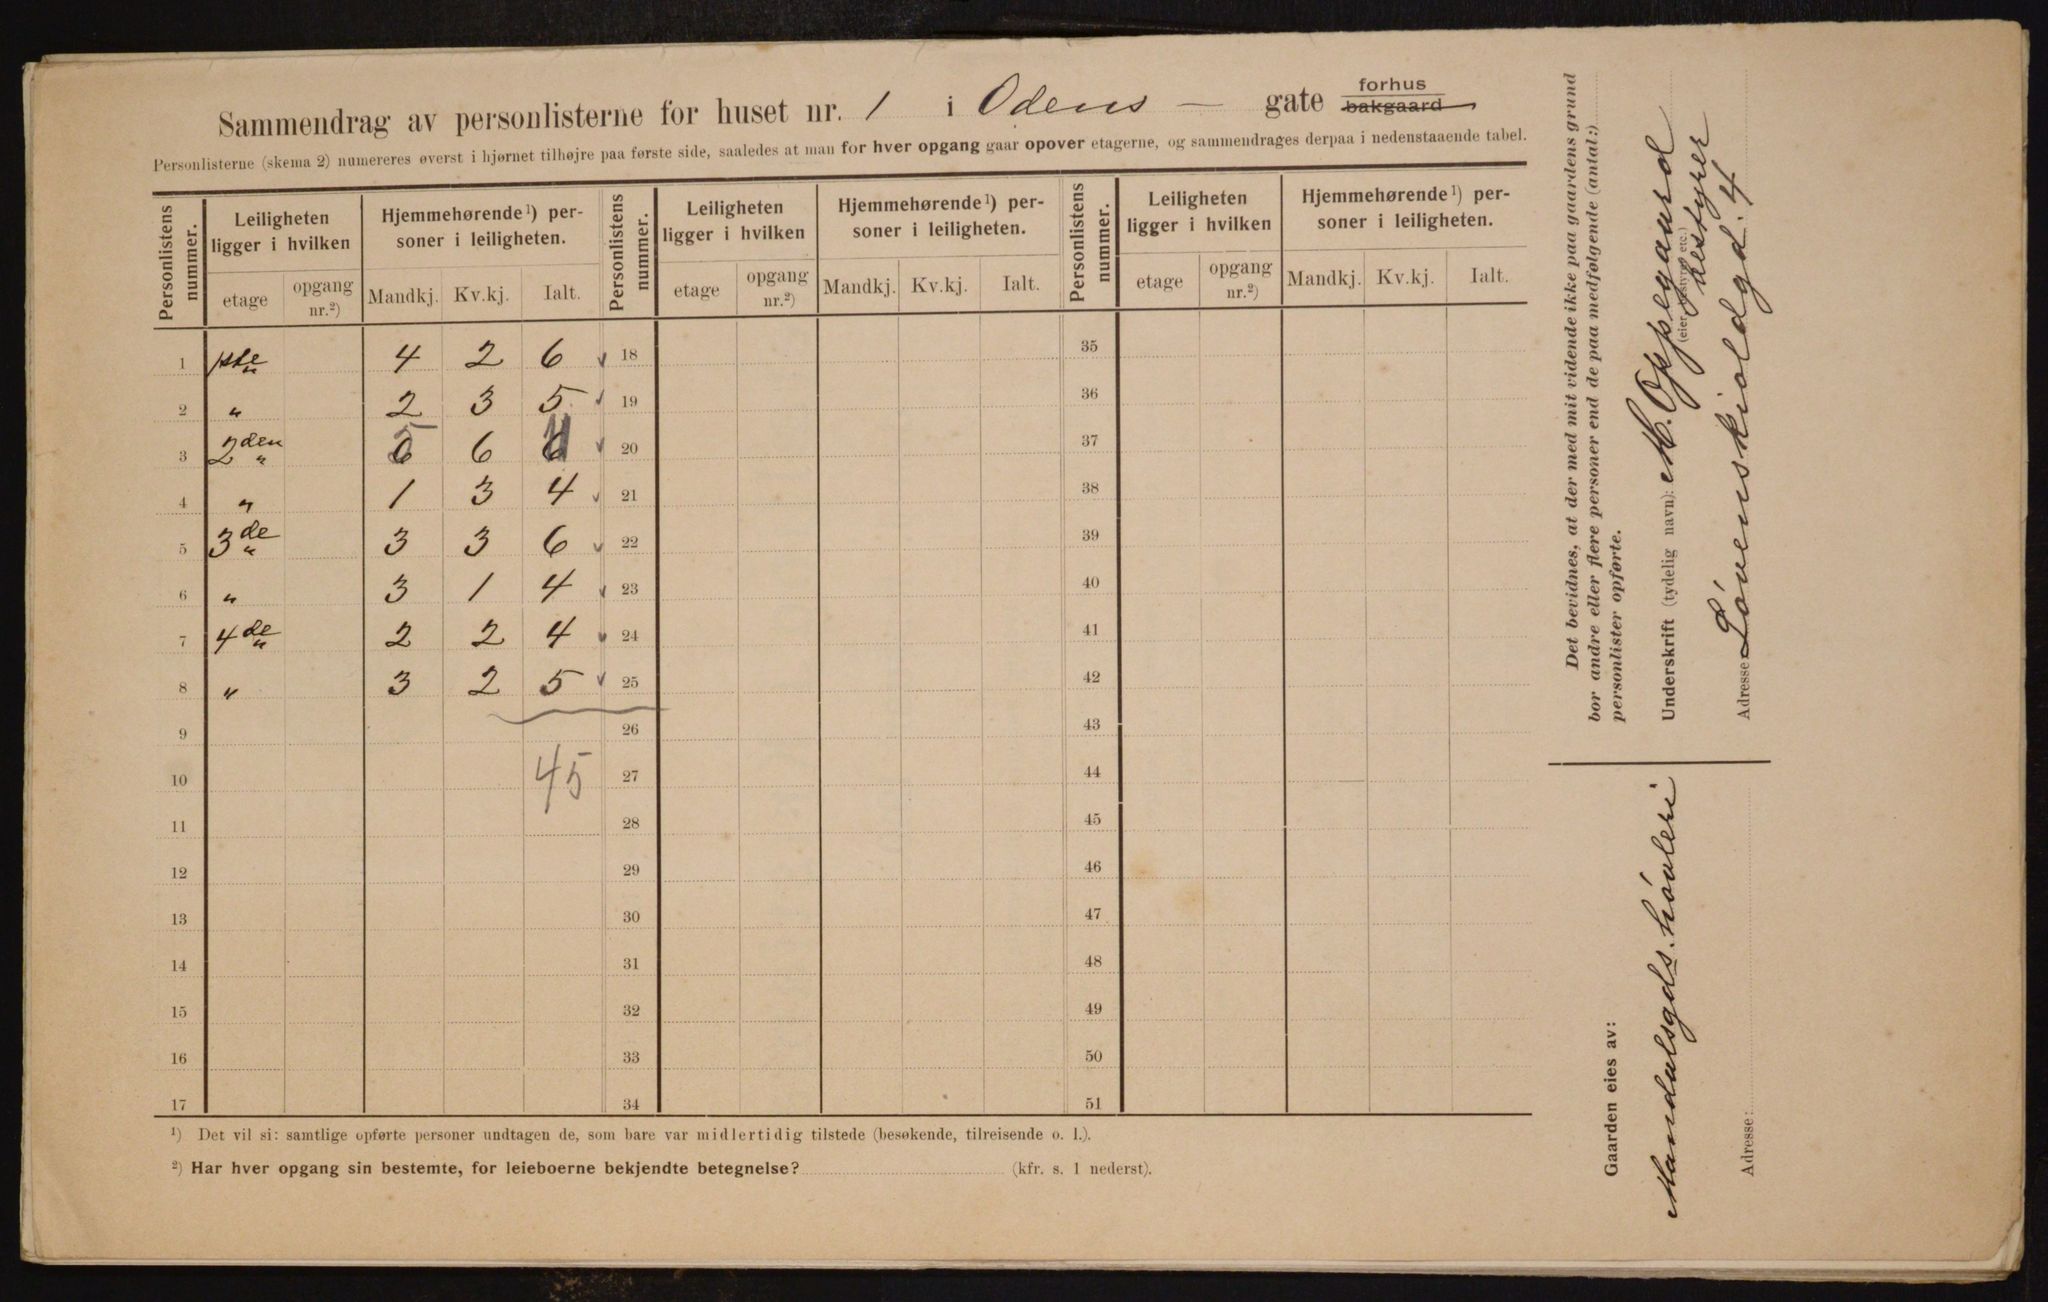 Sammendrag av personlisterne for huset nr. 1 i Odens - gate forhus bakgaard
Personlisterne (skema 2) numereres øverst i hjørnet tilhøjre paa første side, saaledes at man for hver opgang gaar opover etagerne, og sammendrages derpaa i nedenstaaende tabel.
Personlistens nummer. Leiligheten ligger i hvilken Hjemmehørende ¹) personer i leiligheten. Personlistens nummer. Leiligheten ligger i hvilken Hjemmehørende ¹) personer i leiligheten. Personlistens nummer. Leiligheten ligger i hvilken Hjemmehørende ¹) personer i leiligheten.
etage opgang nr.²) Mandkj. Kv.kj. Ialt. etage opgang nr.²) Mandkj. Kv.kj. Ialt. etage opgang nr.²) Mandkj. Kv.kj. Ialt.
1 1ste " 4 2 6 18 35
2 " 2 3 5 19 36
3 2den " 5 6 11 20 37
4 " 1 3 4 21 38
5 3de " 3 3 6 22 39
6 " 3 1 4 23 40
7 4de " 2 2 4 24 41
8 " 3 2 5 25 42
9 26 43
10 45 27 44
11 28 45
12 29 46
13 30 47
14 31 48
15 32 49
16 33 50
17 34 51
¹) Det vil si: samtlige opførte personer undtagen de, som bare var midlertidig tilstede (besøkende, tilreisende o. l.).
²) Har hver opgang sin bestemte, for leieboerne bekjendte betegnelse? (kfr. s. 1 nederst).
Det bevidnes, at der med mit vidende ikke paa gaardens grund
bor andre eller flere personer end de paa medfølgende (antal:)
personlister opførte.
Underskrift (tydelig navn): M. Oppegaard
(eier, bestyrer etc.)
bestyrer
Adresse: Løvenskioldgd. 4
Gaarden eies av:
Mandalsgds. høvleri
Adresse: